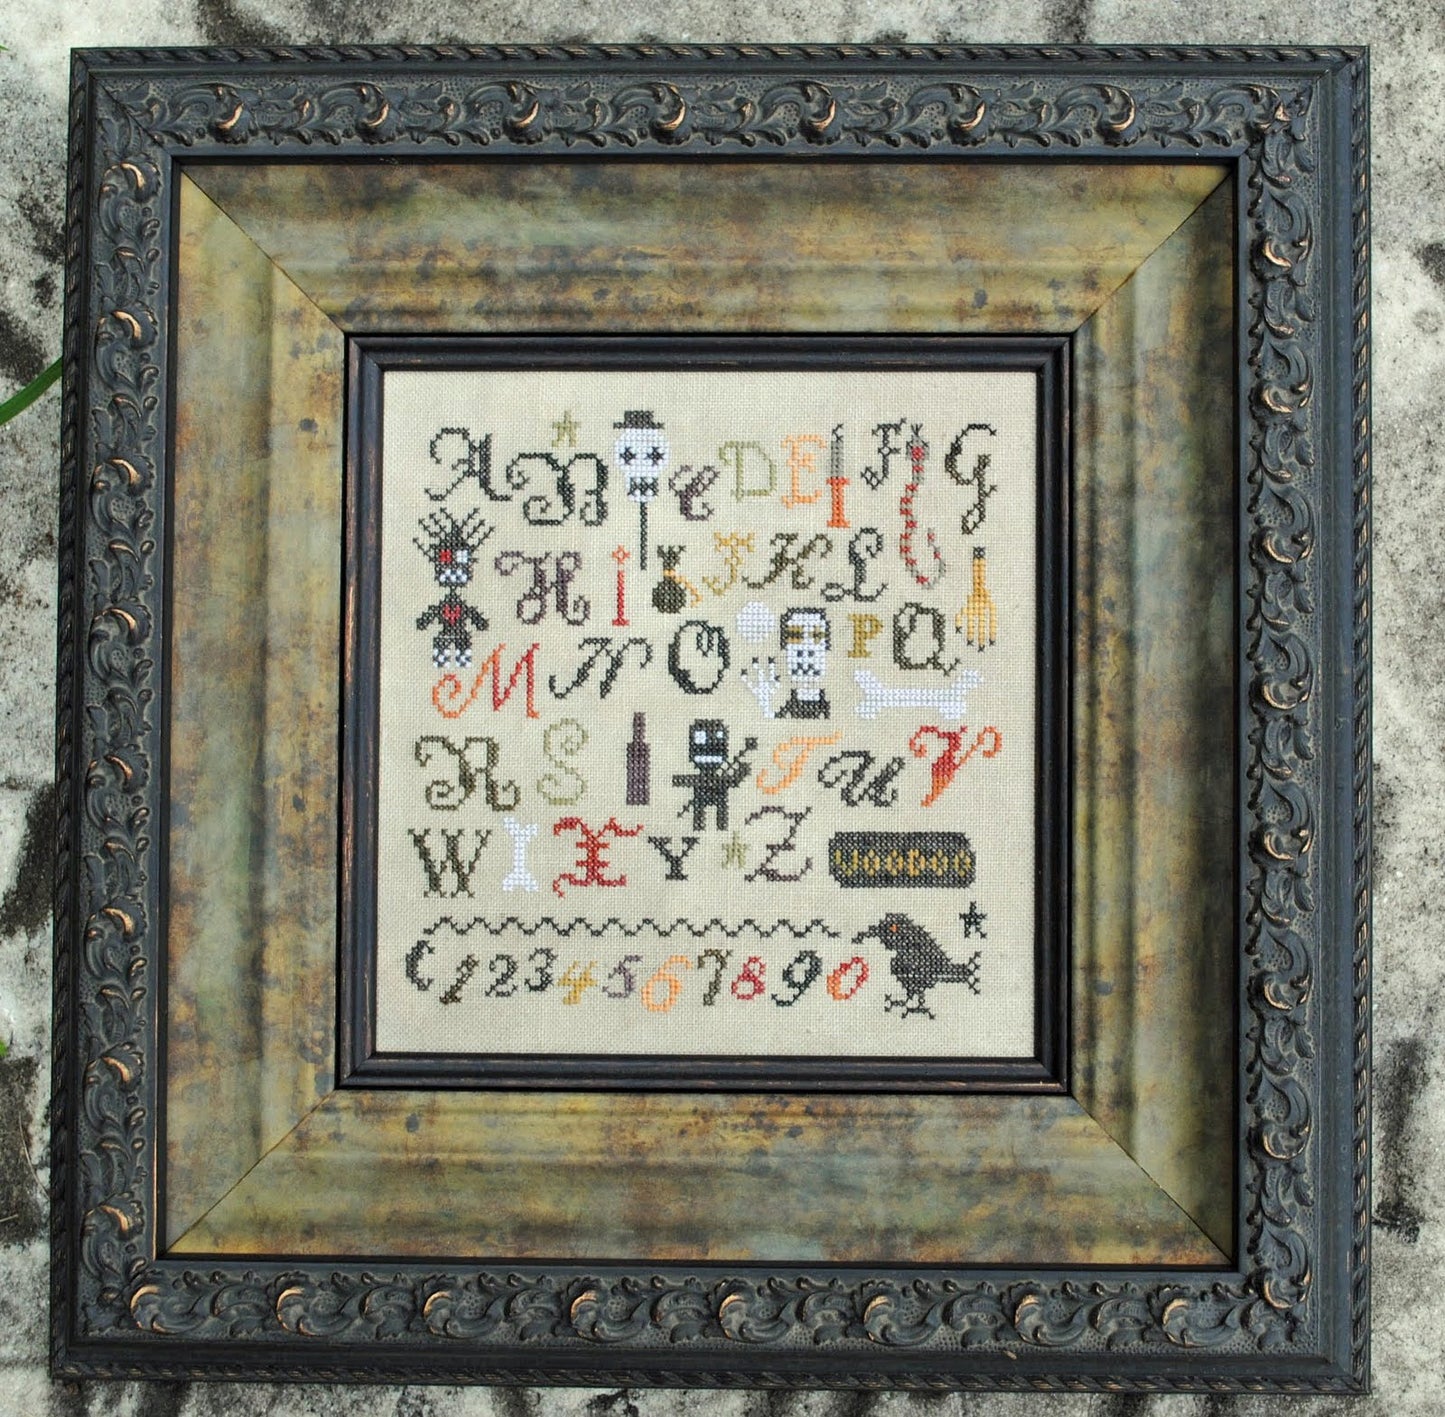 A B C D E F G
H I J K L
M N O P Q
R S T U V
W X Y Z VOODOO
1 2 3 4 5 6 7 8 9 0